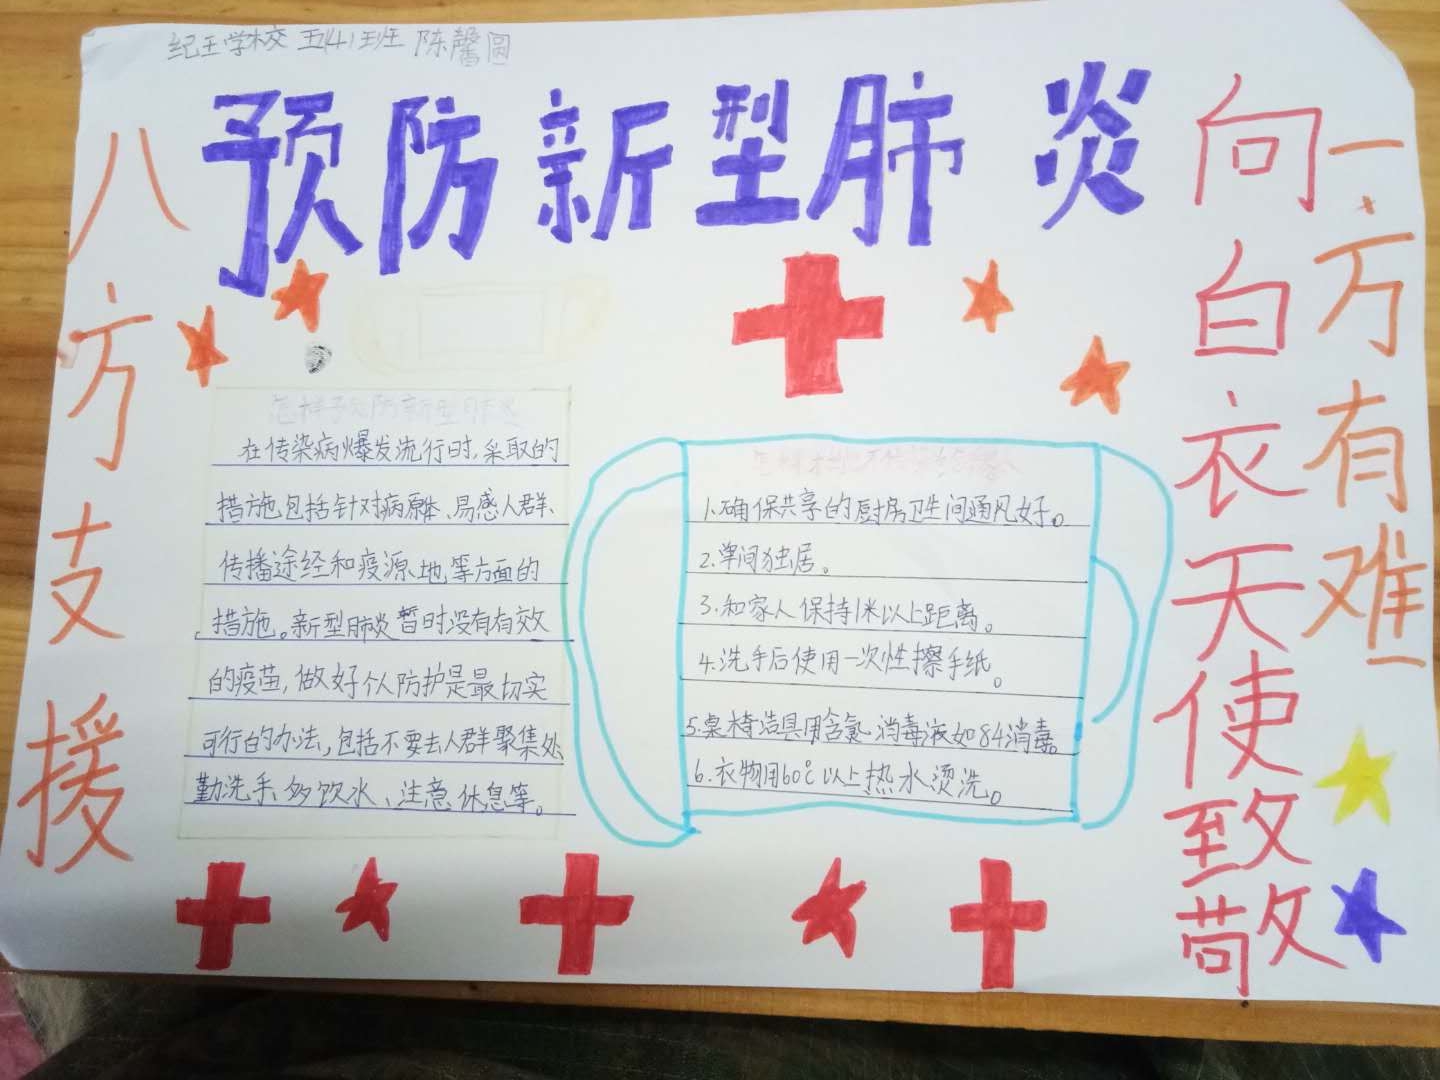 纪王学校 五(4)班 陈馨圆
预防新型肺炎
八方支援
怎样预防新型肺炎
在传染病爆发流行时,采取的
措施包括针对病原体、易感人群、
传播途经和疫源地等方面的
措施。新型肺炎暂时没有有效
的疫苗,做好个人防护是最切实
可行的办法,包括不要去人群聚集处
勤洗手、多饮水、注意休息等。
1.确保共享的厨房卫生间通风好。
2.单间独居。
3.和家人保持1米以上距离。
4.洗手后使用一次性擦手纸。
5.桌椅洁具用含氯消毒液如84消毒。
6.衣物用60℃以上热水烫洗。
向白衣天使致敬
一方有难